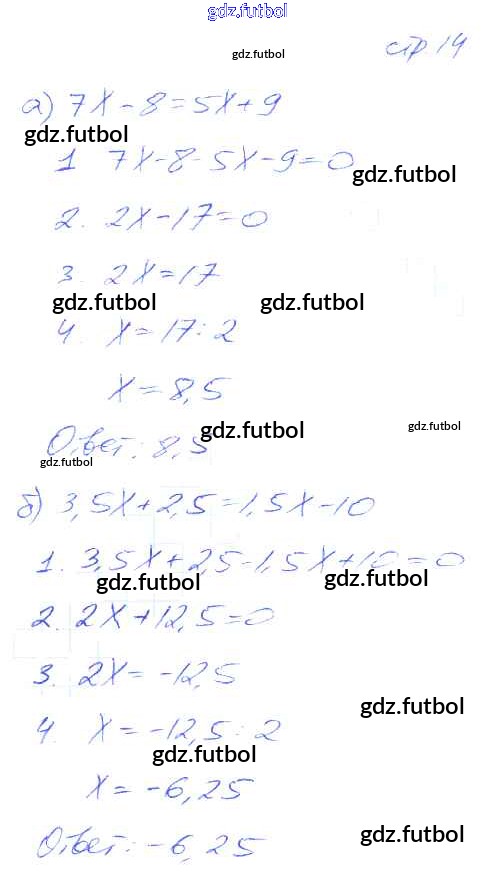 gdz.futbol
gdz.futbol
стр 14
а) 7х - 8 = 5х + 9
gdz.futbol
1 7х - 8 - 5х - 9 = 0
gdz.futbol
2. 2х - 17 = 0
3. 2х = 17
gdz.futbol gdz.futbol
4. х = 17 : 2
х = 8,5
Ответ: 8,5
gdz.futbol gdz.futbol
gdz.futbol
б) 3,5х + 2,5 = 1,5х - 10
1. 3,5х + 2,5 - 1,5х + 10 = 0
gdz.futbol gdz.futbol
2. 2х + 12,5 = 0
3. 2х = -12,5
gdz.futbol
4. х = -12,5 : 2
gdz.futbol
х = -6,25
Ответ: -6,25
gdz.futbol